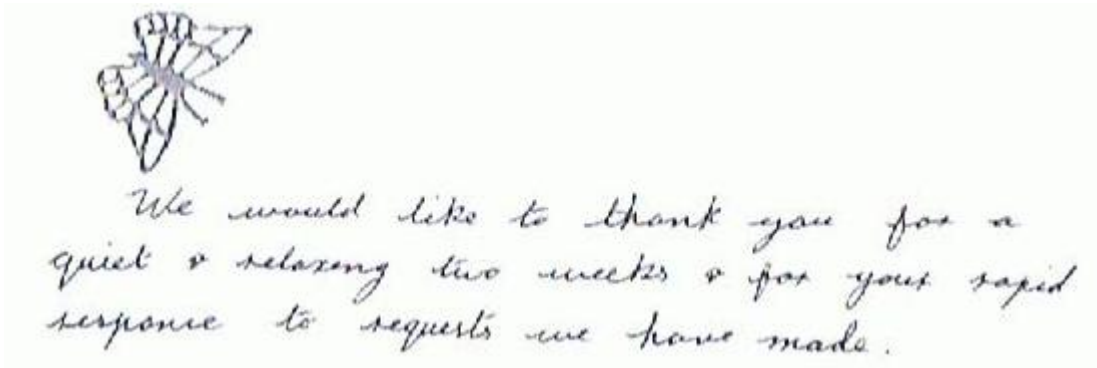 We would like to thank you for a
quiet & relaxing two weeks & for your rapid
response to requests we have made.